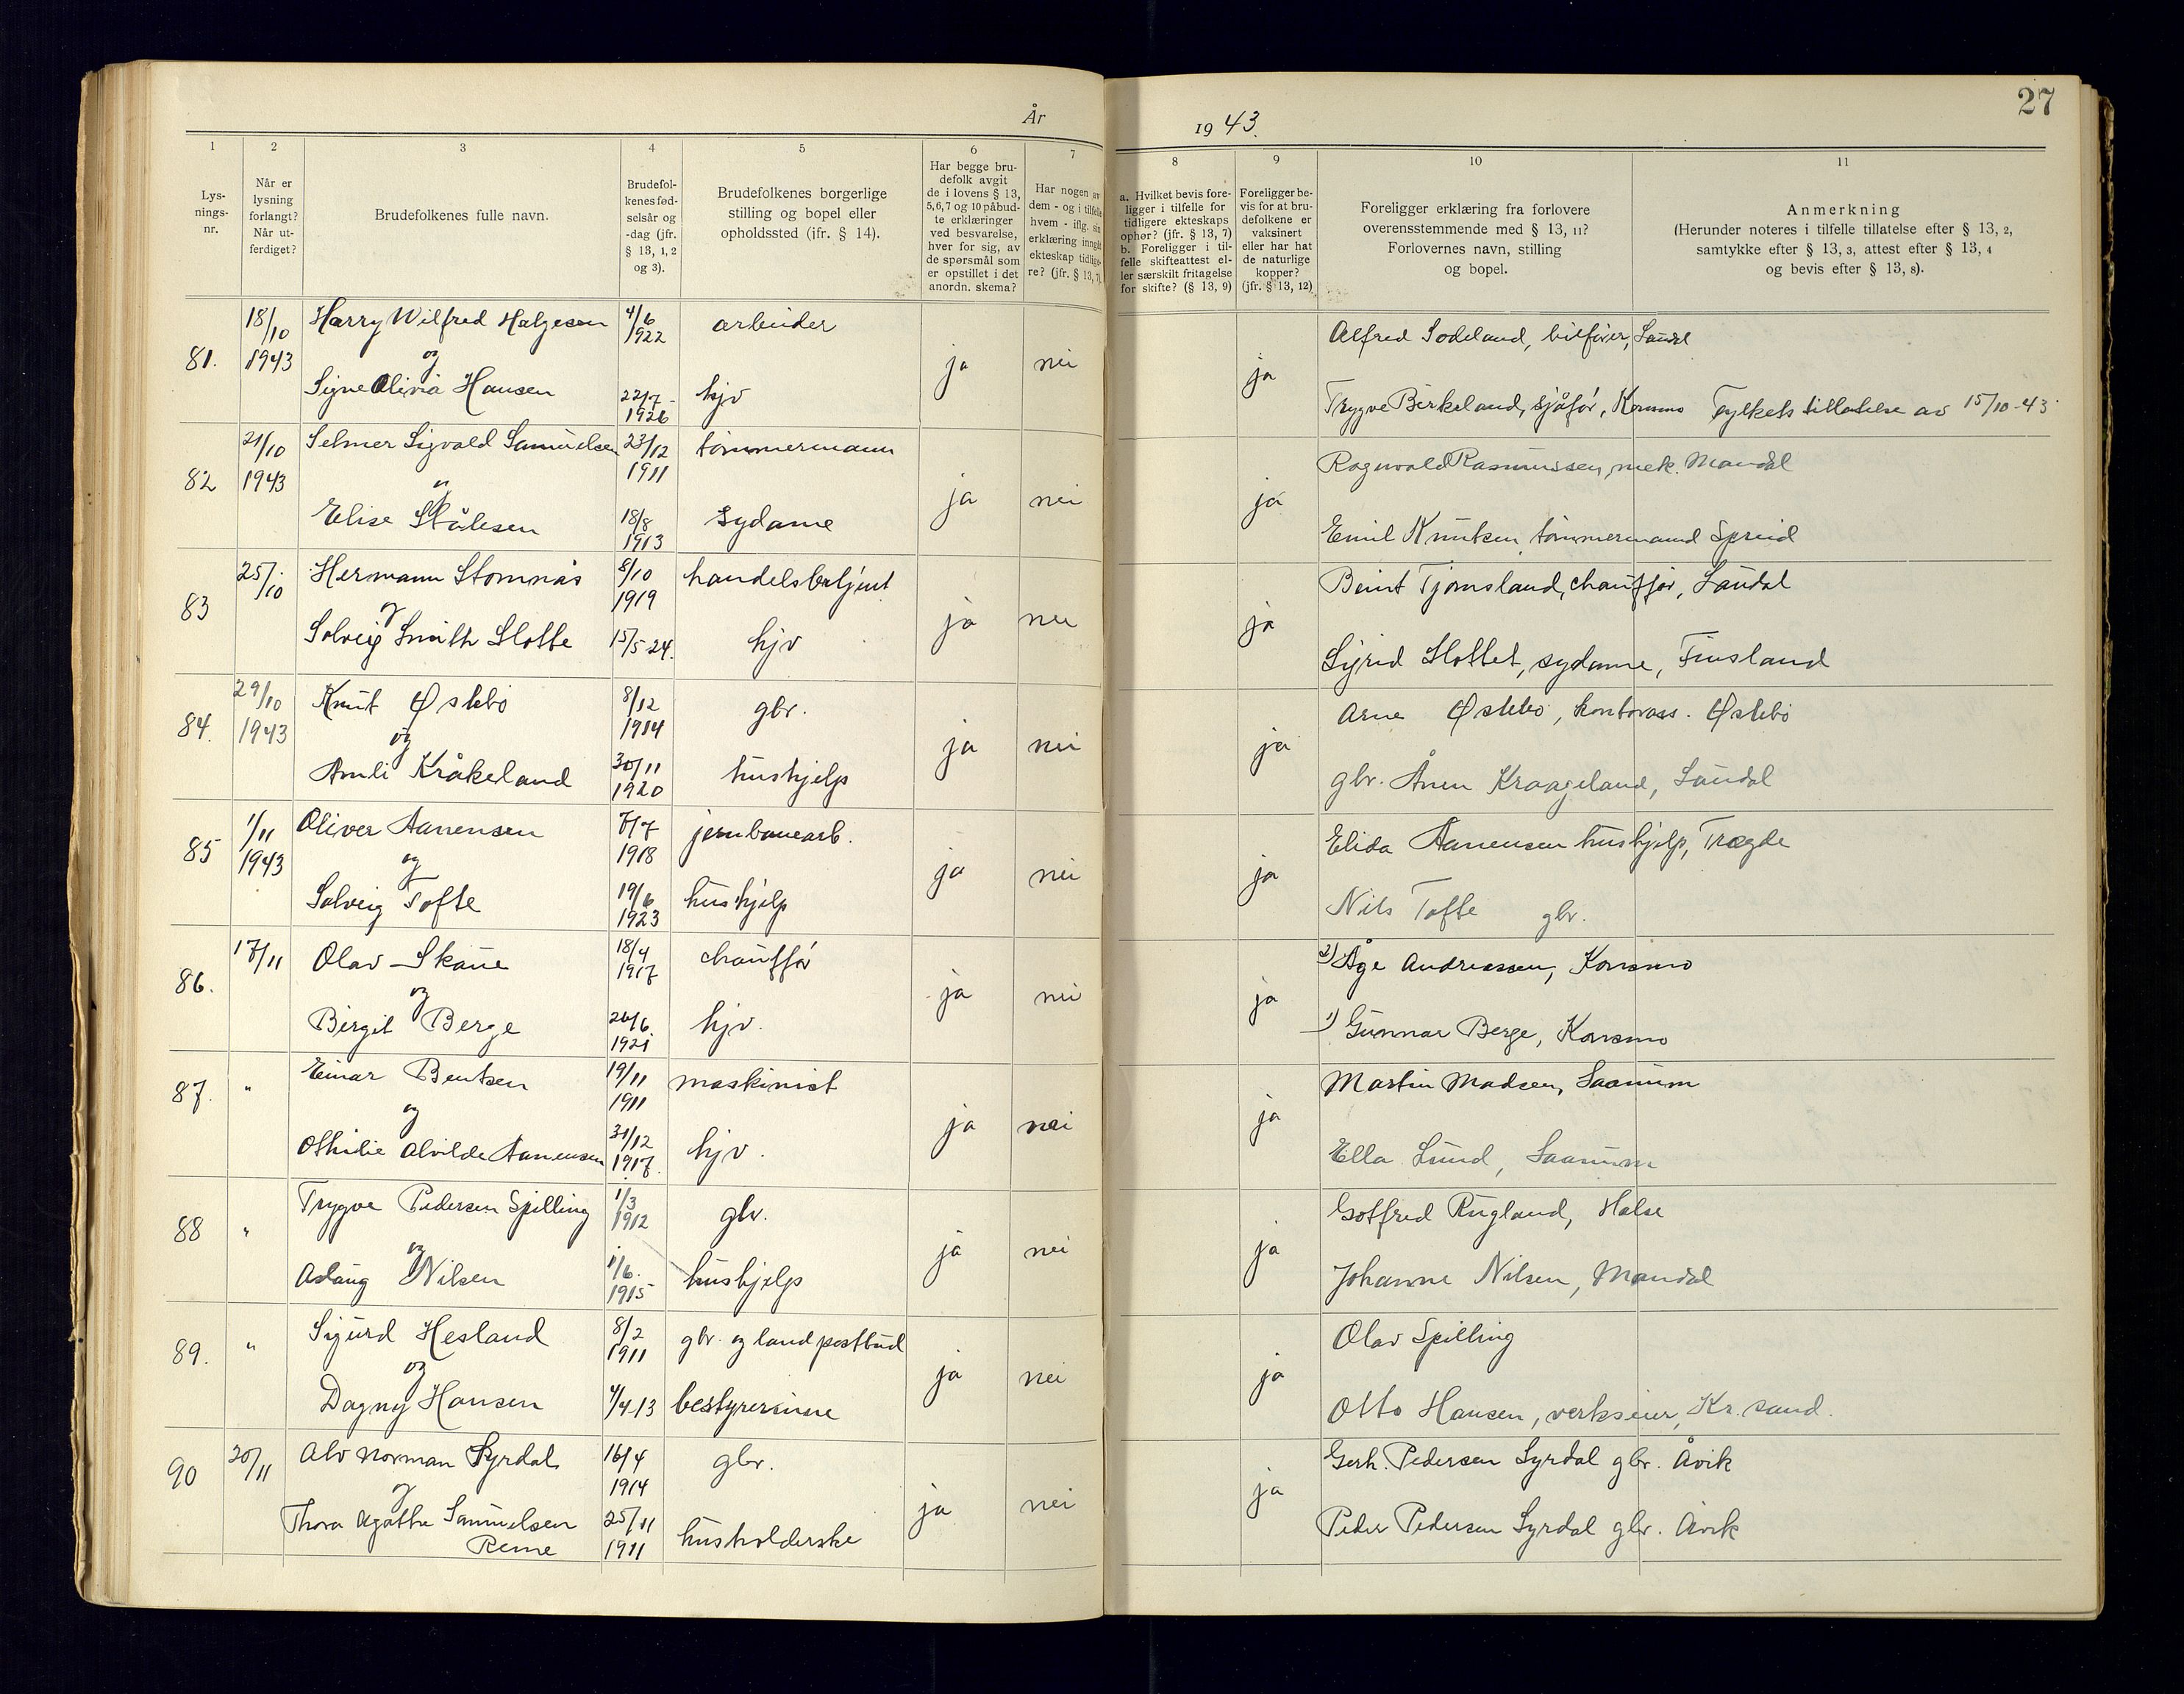 År 1943.
27
1 2 3 4 5 6 7 8 9 10 11
Lys-
nings-
nr.
Når er
lysning
forlangt?
Når ut-
ferdiget?
Brudefolkenes fulle navn.
Brudefol-
kenes fød-
selsår og
-dag (jfr.
§ 13, 1, 2
og 3).
Brudefolkenes borgerlige
stilling og bopel eller
opholdssted (jfr. § 14).
Har begge bru-
defolk avgit
de i lovens § 13,
5,6,7 og 10 påbud-
te erklæringer
ved besvarelse,
hver for sig, av
de spørsmål som
er opstillet i det
anordn. skema?
Har nogen av
dem - og i tilfelle
hvem - iflg. sin
erklæring inngått
ekteskap tidlige-
re? (jfr. § 13, 7)
a. Hvilket bevis fore-
ligger i tilfelle for
tidligere ekteskaps
ophør? (jfr. § 13, 7)
b. Foreligger i til-
felle skifteattest el-
ler særskilt fritagelse
for skifte? (§ 13, 9)
Foreligger be-
vis for at bru-
defolkene er
vaksinert
eller har hat
de naturlige
kopper?
(jfr. § 13, 12)
Foreligger erklæring fra forlovere
overensstemmende med § 13, 11?
Forlovernes navn, stilling
og bopel.
Anmerkning
(Herunder noteres i tilfelle tillatelse efter § 13, 2,
samtykke efter § 13, 3, attest efter § 13, 4
og bevis efter § 13, 8).
81. 18/10 1943 Harry Wilfred Helgesen 4/6 1922 arbeider ja nei ja Alfred Sodeland, bilfører, Laudal
og
Signe Olivia Hansen 22/7 - 1926 hjv Trygve Birkeland, sjåfør, Konsmo Fylkets tillatelse av 15/10-43
82 21/10 1943 Selmer Sigvald Samuelsen 23/12 1911 tømmermann ja nei ja Ragnvald Rasmussen, mek. Mandal
og
Elise Stålesen 18/8 1913 sydame Emil Knutsen, tømmermand Spreid
83 25/10 Hermann Stomnås 8/10 1919 handelsbetjent ja nei ja Beint Tjomsland, chauffør, Laudal
og
Solveig Smith Slotte 15/5-24. hjv Sigrid Slottet, sydame, Finsland
84. 29/10 1943 Knut Østebø 8/12 1914 gbr. ja nei ja Arne Østebø, kontorass. Østebø
og
Amli Kråkeland 30/11 1920 hushjelp gbr. Ånen Kraageland, Laudal
85 1/11 1943 Oliver Aanensen 7/7 1918 jernbanearb. ja nei ja Elida Aanensen hushjelp, Tregde
og
Solveig Tofte 19/6 1923 hushjelp Nils Tofte gbr.
86. 17/11 Olav Skaue 18/4 1917 chauffør ja nei ja 2) Åge Andreassen, Konsmo
og
Birgit Berge 26/6. 1921 hjv. 1) Gunnar Berge, Konsmo
87. " Einar Bentsen 19/11 1911 maskinist ja nei ja Martin Madsen, Saanum
og
Othilie Alvilde Aanensen 31/12 1917. hjv. Ella Lund, Saanum
88 " Trygve Pedersen Spilling 1/3 1912 gbr. ja nei ja Gotfred Rugland, Halse
og
Aslaug Nilsen 1/6. 1915 hushjelp Johanne Nilsen, Mandal
89. " Sigurd Hesland 8/2 1911 gbr. og landpostbud ja nei ja Olav Spilling
og
Dagny Hansen 4/4-13 bestyrerinne Otto Hansen, verkseier, Kr.sand.
90 20/11 Alv Norman Syrdal 16/4 1914 gbr. ja nei ja Gerh. Pedersen Syrdal gbr. Åvik
og
Thora Agathe Samuelsen
Reme 25/11 1911 husholderske Peder Pedersen Syrdal gbr. Åvik